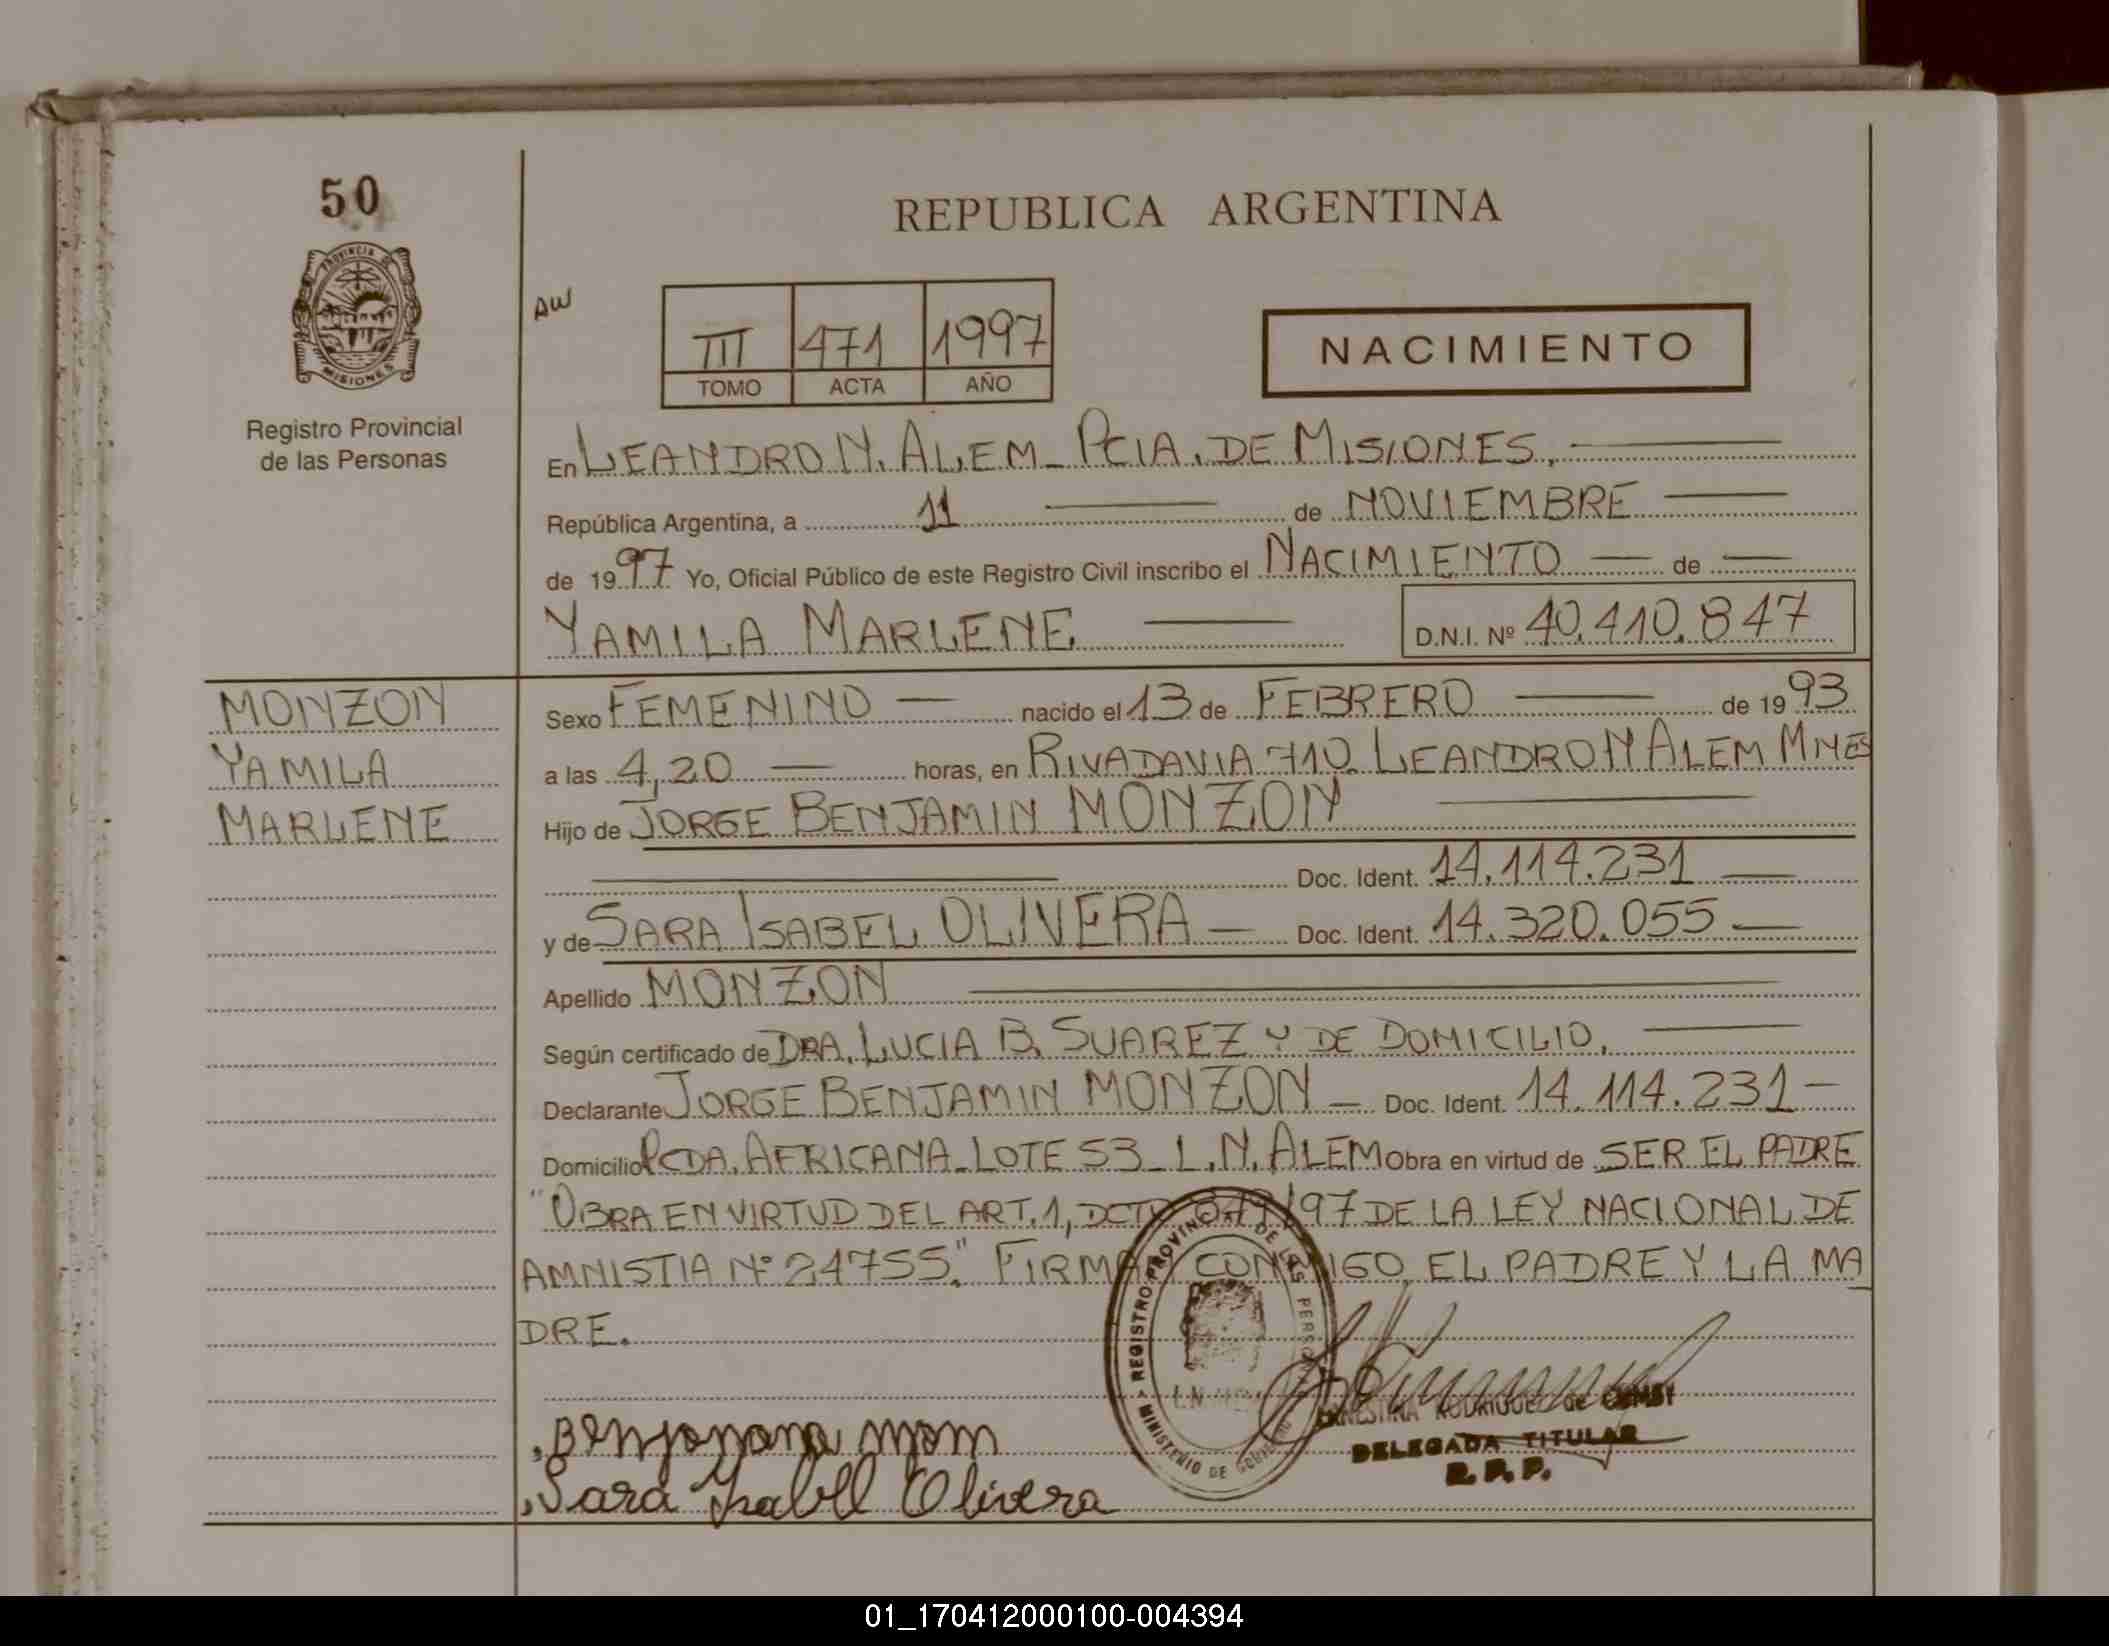 50
REPUBLICA ARGENTINA
PROVINCIA DE
MISIONES
Registro Provincial
de las Personas
AW
III 471 1997
TOMO ACTA AÑO
NACIMIENTO
En LEANDRO N. ALEM - PCIA. DE MISIONES,
República Argentina, a 11 de NOVIEMBRE
de 1997 Yo, Oficial Público de este Registro Civil inscribo el NACIMIENTO de
YAMILA MARLENE D.N.I. Nº 40.410.847
MONZON
YAMILA
MARLENE
Sexo FEMENINO nacido el 13 de FEBRERO de 1993
a las 4,20 horas, en RIVADAVIA 710. LEANDRO N ALEM MNES
Hijo de JORGE BENJAMIN MONZON
Doc. Ident. 14.114.231
y de SARA ISABEL OLIVERA Doc. Ident. 14.320.055
Apellido MONZON
Según certificado de DRA. LUCIA B. SUAREZ Y DE DOMICILIO,
Declarante JORGE BENJAMIN MONZON Doc. Ident. 14.114.231
Domicilio PCDA. AFRICANA - LOTE 53 - L.N. ALEM Obra en virtud de SER EL PADRE
"OBRA EN VIRTUD DEL ART. 1, DCTO /97 DE LA LEY NACIONAL DE
AMNISTIA Nº 24755." FIRMAN CONMIGO, EL PADRE Y LA MA
DRE.
REGISTRO PROVINCIAL DE LAS PERSONAS
MINISTERIO DE GOBIERNO
RODRIGUEZ de
DELEGADA TITULAR
R.P.P.
Sara Isabel Olivera
01_170412000100-004394